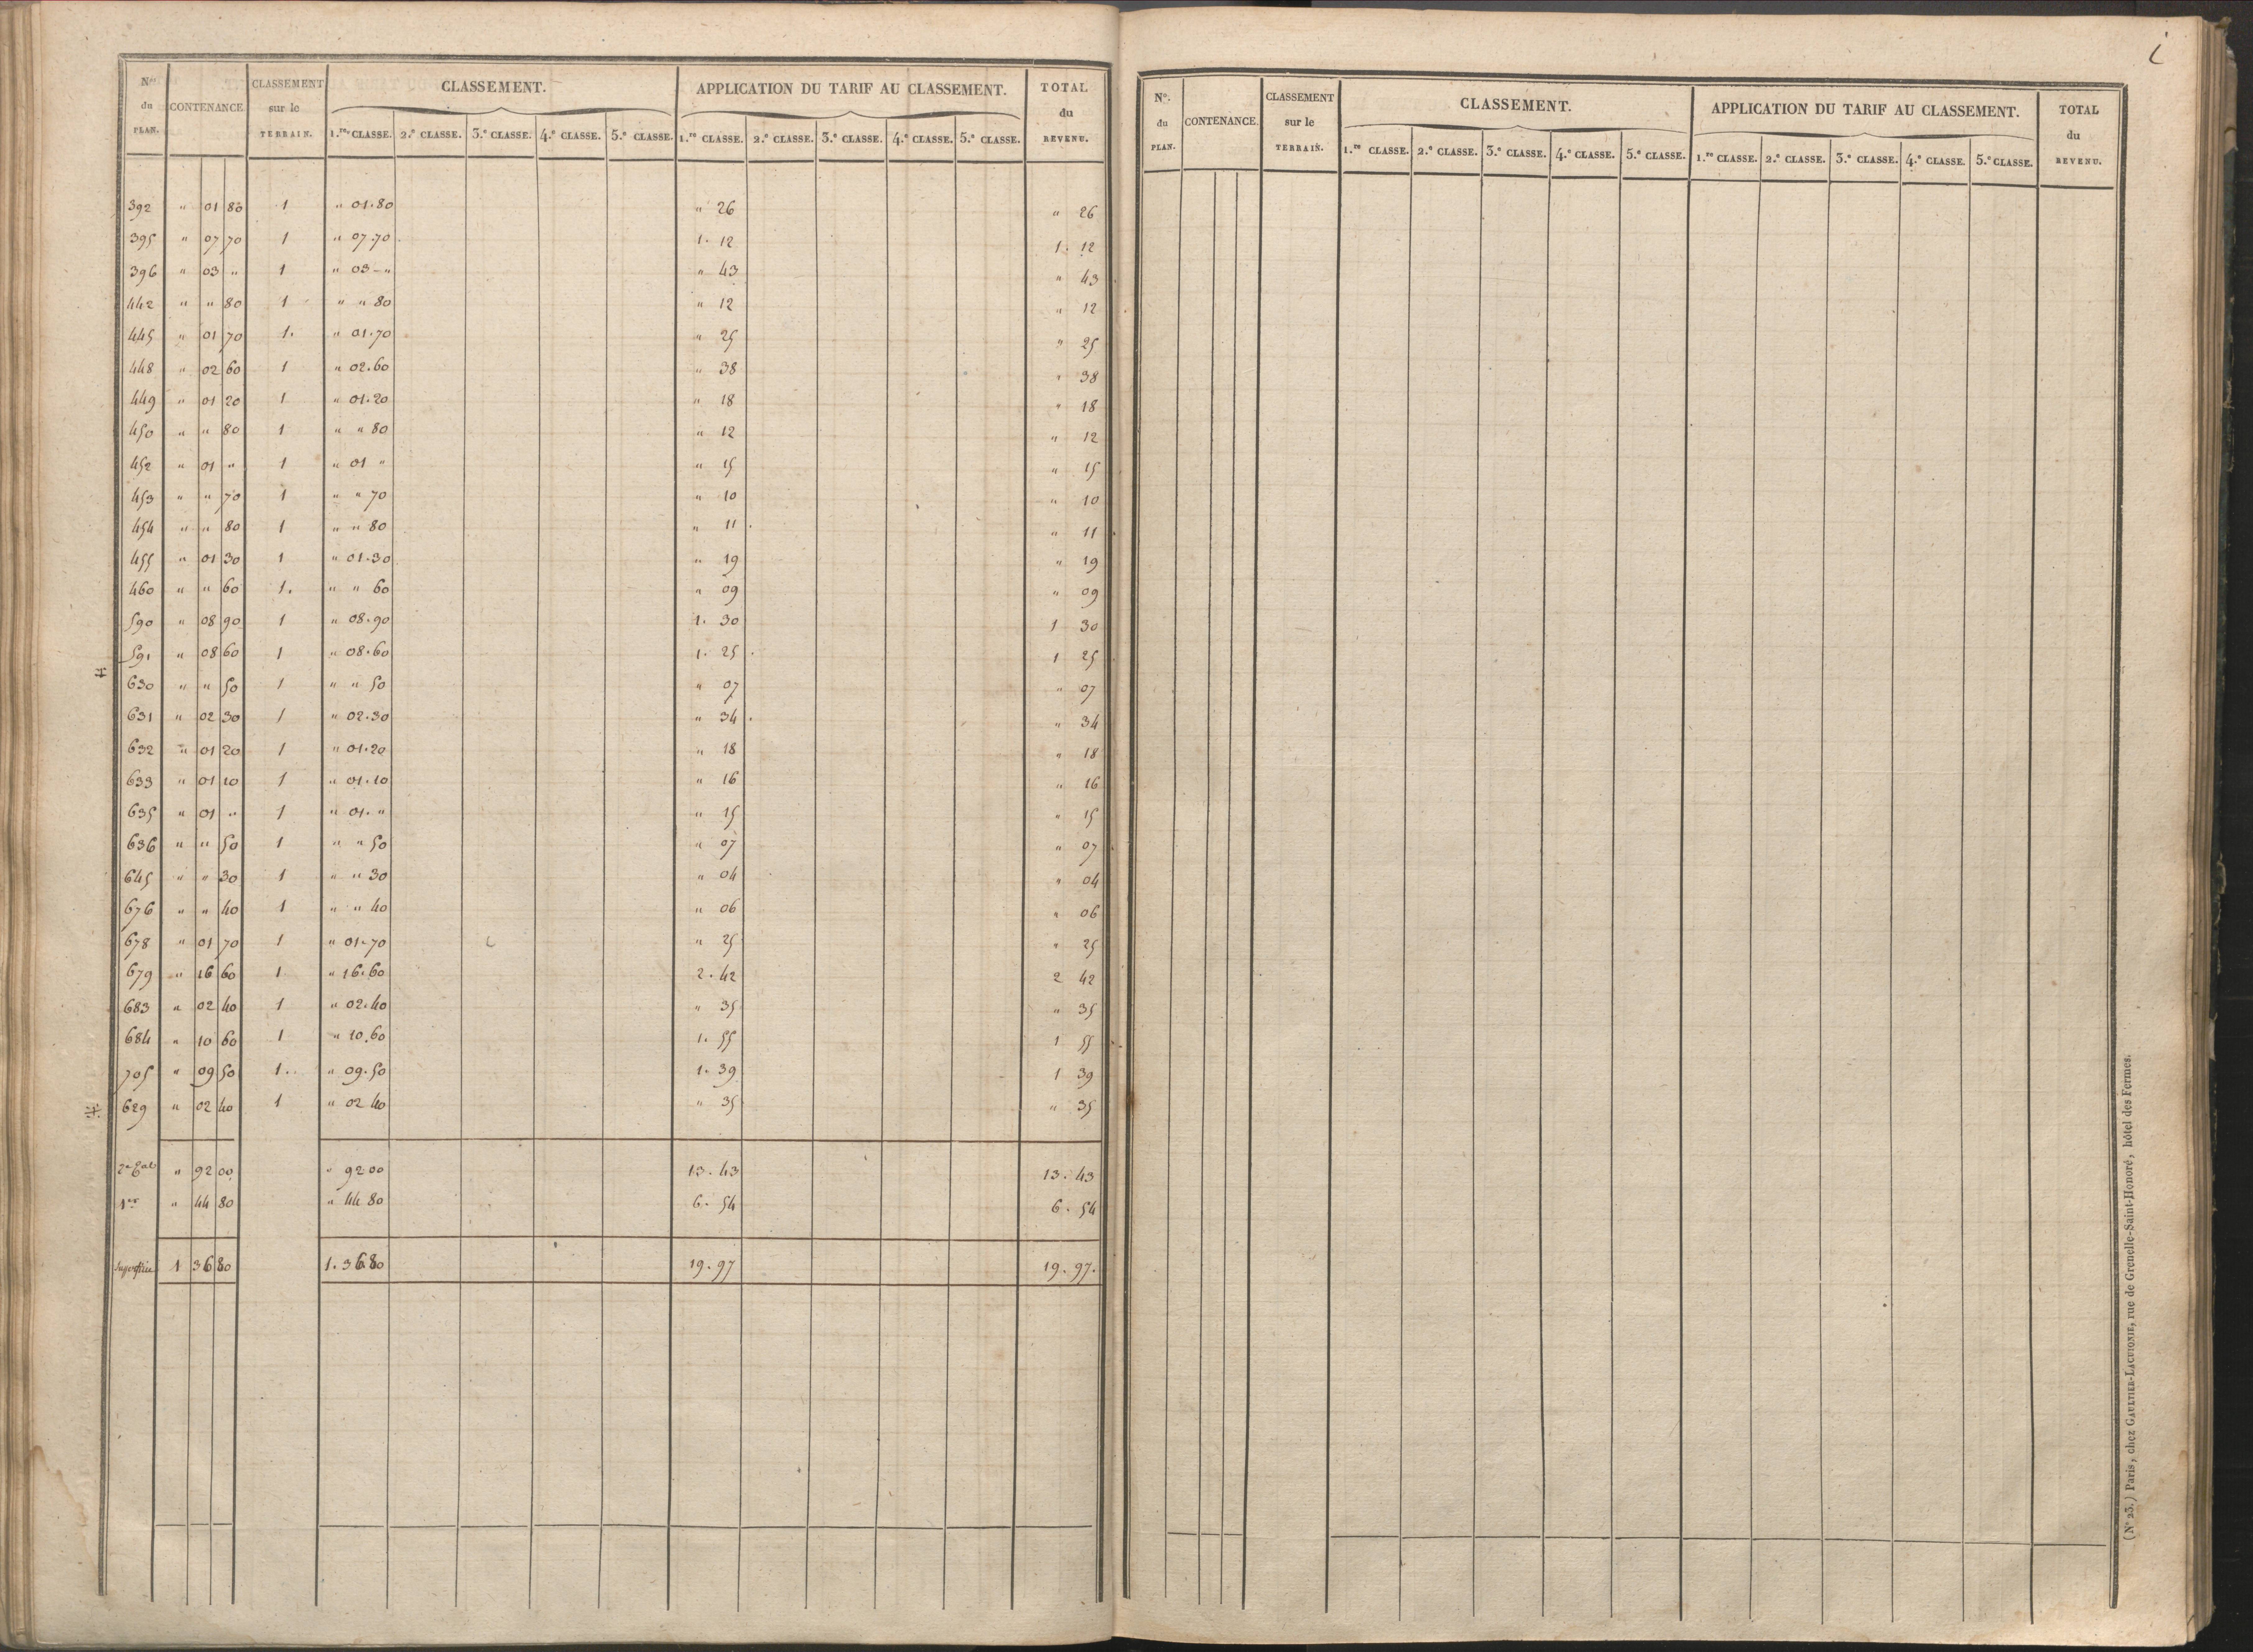 Nos du PLAN. | CONTENANCE | CLASSEMENT sur le TERRAIN. | CLASSEMENT. | APPLICATION DU TARIF AU CLASSEMENT. | TOTAL du REVENU.
1.re CLASSE. | 2.e CLASSE. | 3.e CLASSE. | 4.e CLASSE. | 5.e CLASSE. | 1.re CLASSE. | 2.e CLASSE. | 3.e CLASSE. | 4.e CLASSE. | 5.e CLASSE.
392 " 01 80 1 " 01.80 " 26 " 26
395 " 07 70 1 " 07.70 1. 12 1. 12
396 " 03 " 1 " 03 - " " 43 " 43
442 " " 80 1 " " 80 " 12 " 12
445 " 01 70 1. " 01.70 " 25 " 25
448 " 02 60 1 " 02.60 " 38 " 38
449 " 01 20 1 " 01.20 " 18 " 18
450 " " 80 1 " " 80 " 12 " 12
452 " 01 " 1 " 01 " " 15 " 15
453 " " 70 1 " " 70 " 10 " 10
454 " " 80 1 " " 80 " 11 " 11
455 " 01 30 1 " 01.30 " 19 " 19
460 " " 60 1. " " 60 " 09 " 09
590 " 08 90 1 " 08.90 1. 30 1 30
591 " 08 60 1 " 08.60 1. 25 1 25
630 " " 50 1 " " 50 " 07 " 07
631 " 02 30 1 " 02.30 " 34 " 34
632 " 01 20 1 " 01.20 " 18 " 18
633 " 01 10 1 " 01.10 " 16 " 16
635 " 01 " 1 " 01. " " 15 " 15
636 " " 50 1 " " 50 " 07 " 07
645 " " 30 1 " " 30 " 04 " 04
676 " " 40 1 " " 40 " 06 " 06
678 " 01 70 1 " 01.70 " 25 " 25
679 " 16 60 1 " 16.60 2. 42 2 42
683 " 02 40 1 " 02.40 " 35 " 35
684 " 10 60 1 " 10.60 1. 55 1 55
705 " 09 50 1. " 09.50 1. 39 1 39
629 " 02 40 1 " 02 40 " 35 " 35
" 92 00 " 92 00 13. 43 13. 43
1er " 44 80 " 44.80 6. 54 6. 54
1 36 80 1. 36.80 19. 97 19. 97.
No. du PLAN. | CONTENANCE. | CLASSEMENT sur le TERRAIN. | CLASSEMENT. | APPLICATION DU TARIF AU CLASSEMENT. | TOTAL du REVENU.
1.re CLASSE. | 2.e CLASSE. | 3.e CLASSE. | 4.e CLASSE. | 5.e CLASSE. | 1.re CLASSE. | 2.e CLASSE. | 3.e CLASSE. | 4.e CLASSE. | 5.e CLASSE.
(N° 23.) Paris, chez GAULTIER-LAGUIONIE, rue de Grenelle-Saint-Honoré, hôtel des Fermes.